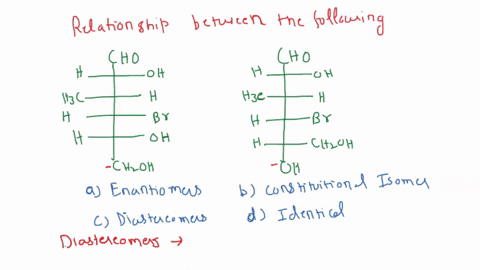 Relationship between the following
CHO CHO
H OH H OH
H3C H H3C H
H Br H Br
H OH H CH2OH
-CH2OH -OH
a) Enantiomers b) constituitional Isomer
c) Diastereomers d) Identical
Diastereomers →